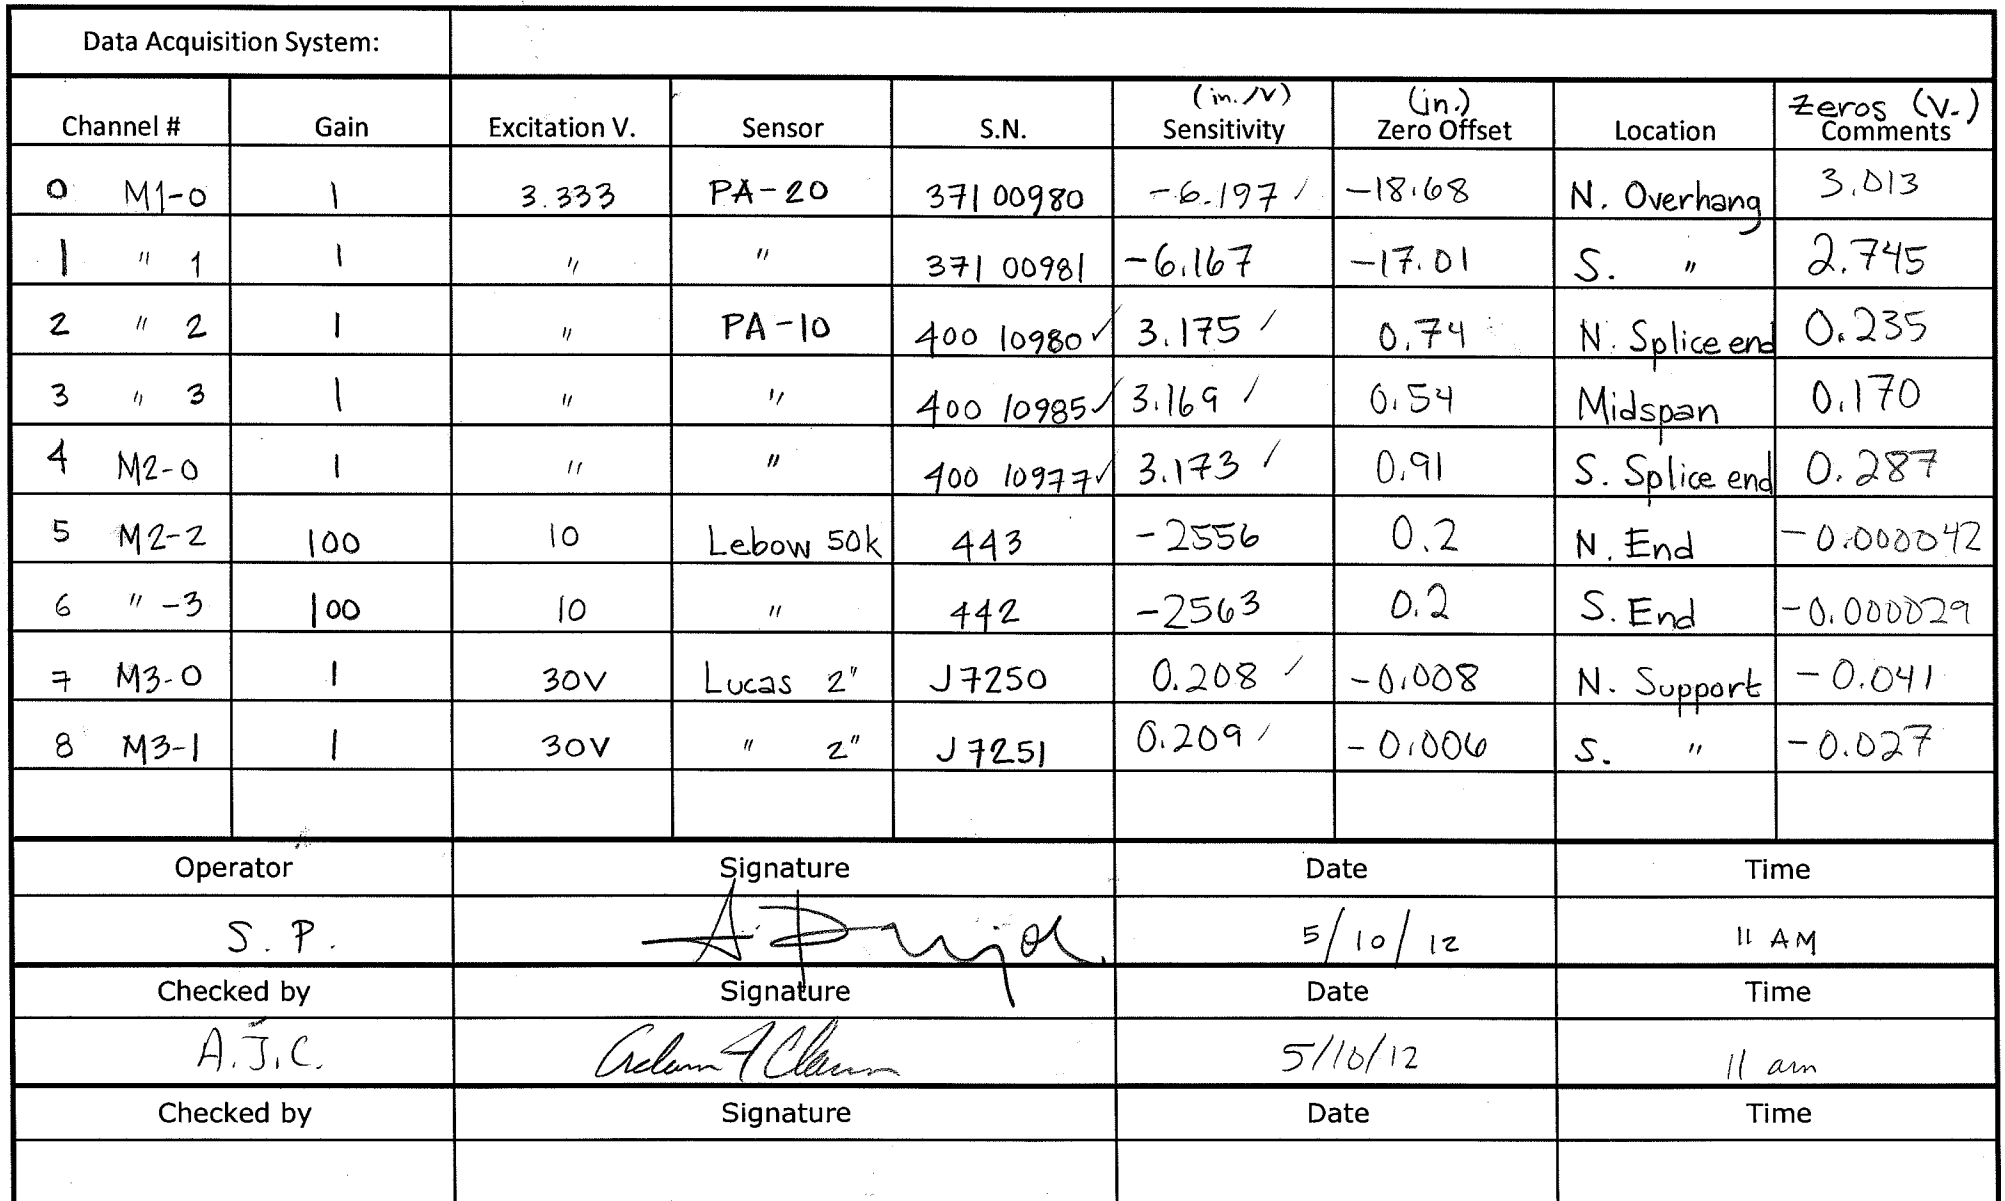 Data Acquisition System:
(in./V) (in.) Zeros (V.)
Channel # Gain Excitation V. Sensor S.N. Sensitivity Zero Offset Location Comments
0 M1-0 1 3.333 PA-20 371 00980 -6.197 / -18.68 N. Overhang 3.013
1 " 1 1 " " 371 00981 -6.167 -17.01 S. " 2.745
2 " 2 1 " PA-10 400 10980 ✓ 3.175 / 0.74 N. Splice end 0.235
3 " 3 1 " " 400 10985 ✓ 3.169 / 0.54 Midspan 0.170
4 M2-0 1 " " 400 10977 ✓ 3.173 / 0.91 S. Splice end 0.287
5 M2-2 100 10 Lebow 50k 443 -2556 0.2 N. End -0.000042
6 " -3 100 10 " 442 -2563 0.2 S. End -0.000029
7 M3-0 1 30V Lucas 2" J7250 0.208 / -0.008 N. Support -0.041
8 M3-1 1 30V " 2" J7251 0.209 / -0.006 S. " -0.027
Operator Signature Date Time
S. P. 5/10/12 11 AM
Checked by Signature Date Time
A.J.C. Adam 5/10/12 11 am
Checked by Signature Date Time